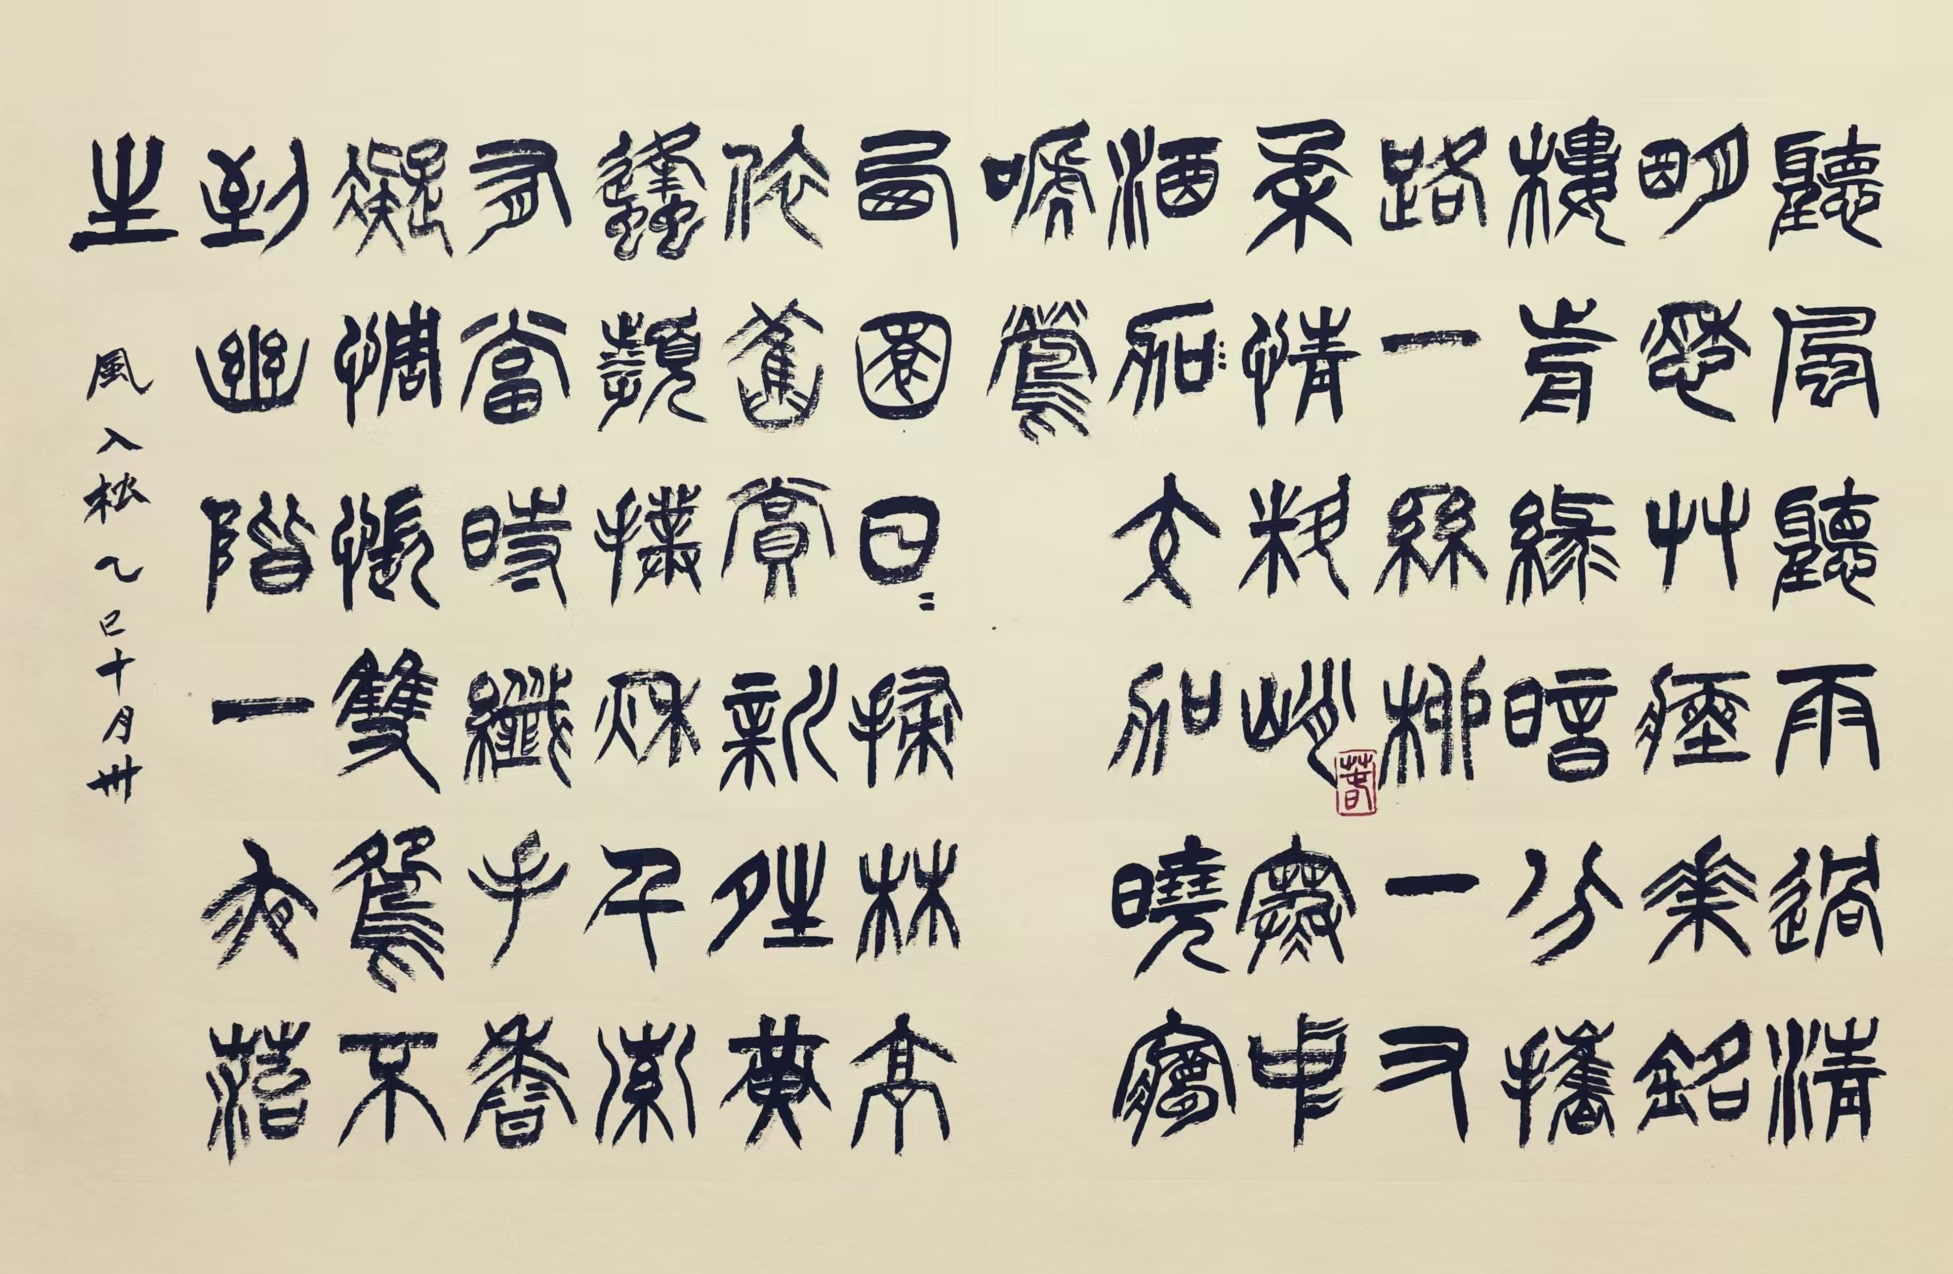 聽風聽雨過清
明愁草瘞花銘
樓前綠暗分攜
路一絲柳一寸
柔情料峭春寒中
酒加交加曉夢
啼鶯
西園日=掃林亭
依舊賞新晴黃
蜂頻撲秋千索
有當時纖手香
凝惆悵雙鴛不
到幽階一夜苔
生
風入松 乙巳十月卅